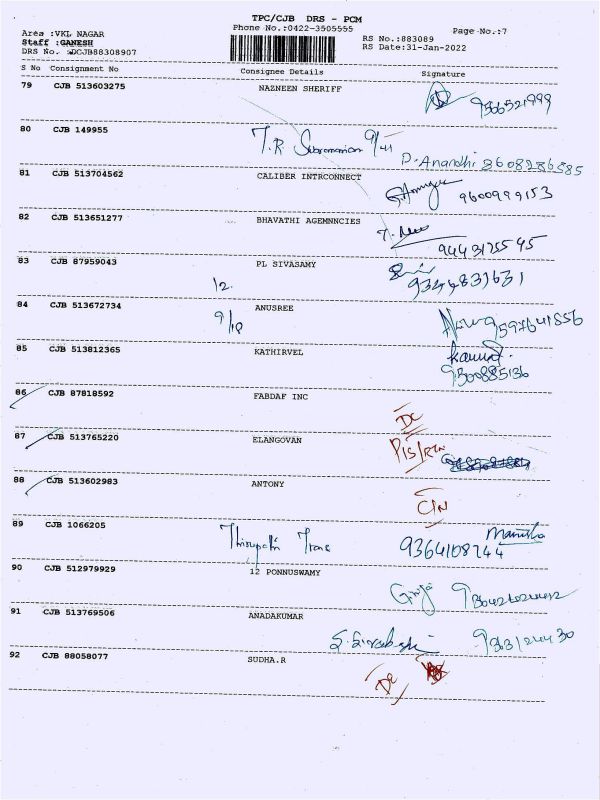 TPC/CJB DRS - PCM
Phone No.:0422-3505555
Area :VKL NAGAR
Staff :GANESH
DRS No. :DCJB88308907
RS No.:883089
RS Date:31-Jan-2022
Page No.:7
S No Consignment No Consignee Details Signature
79 CJB 513603275 NAZNEEN SHERIFF
80 CJB 149955 T.R Subramanian 9/41 D.Anandhi 8608286585
81 CJB 513704562 CALIBER INTRCONNECT 9600999153
82 CJB 513651277 BHAVATHI AGEMNNCIES 9443125545
83 CJB 87959043 PL SIVASAMY 9344831631
12.
84 CJB 513672734 ANUSREE 9597641556
9/18
85 CJB 513812365 KATHIRVEL
9500885136
86 CJB 87818592 FABDAF INC DC
87 CJB 513765220 ELANGOVAN
88 CJB 513602983 ANTONY
89 CJB 1066205 Thirupathi Trans 9364108244 Manisha
90 CJB 512979929 12 PONNUSWAMY
91 CJB 513769506 ANADAKUMAR
92 CJB 88058077 SUDHA.R DC